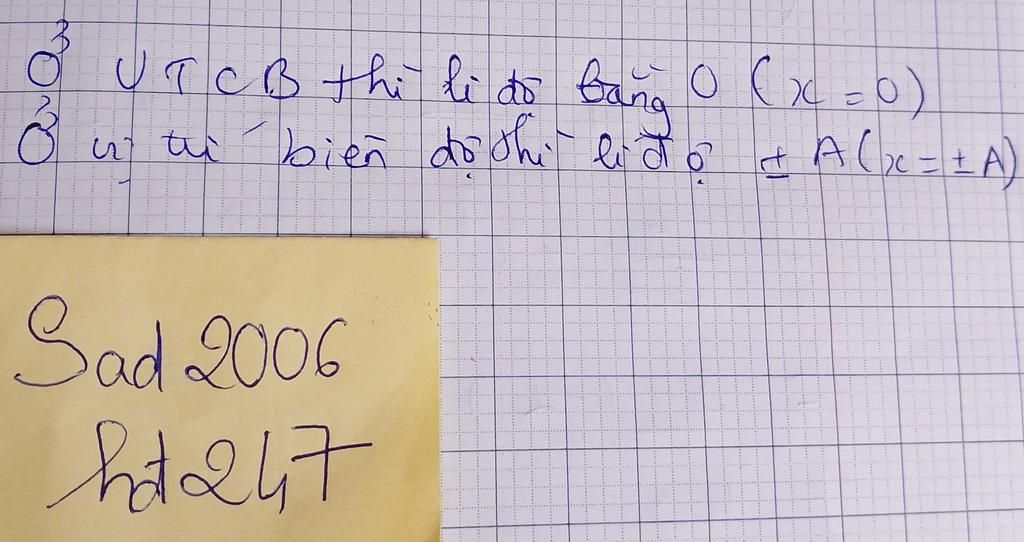 Ở VTCB thì li độ bằng 0 (x = 0)
Ở vị trí biên độ thì li độ ± A (x = ± A)
Sad 2006
hđ 247